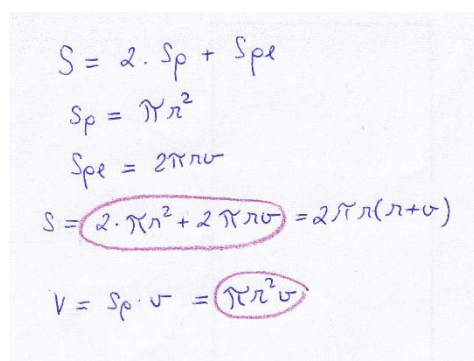 S = 2 · Sp + Spl
Sp = πr²
Spl = 2πrv
S = 2·πr² + 2πrv = 2πr(r+v)
V = Sp · v = πr²v